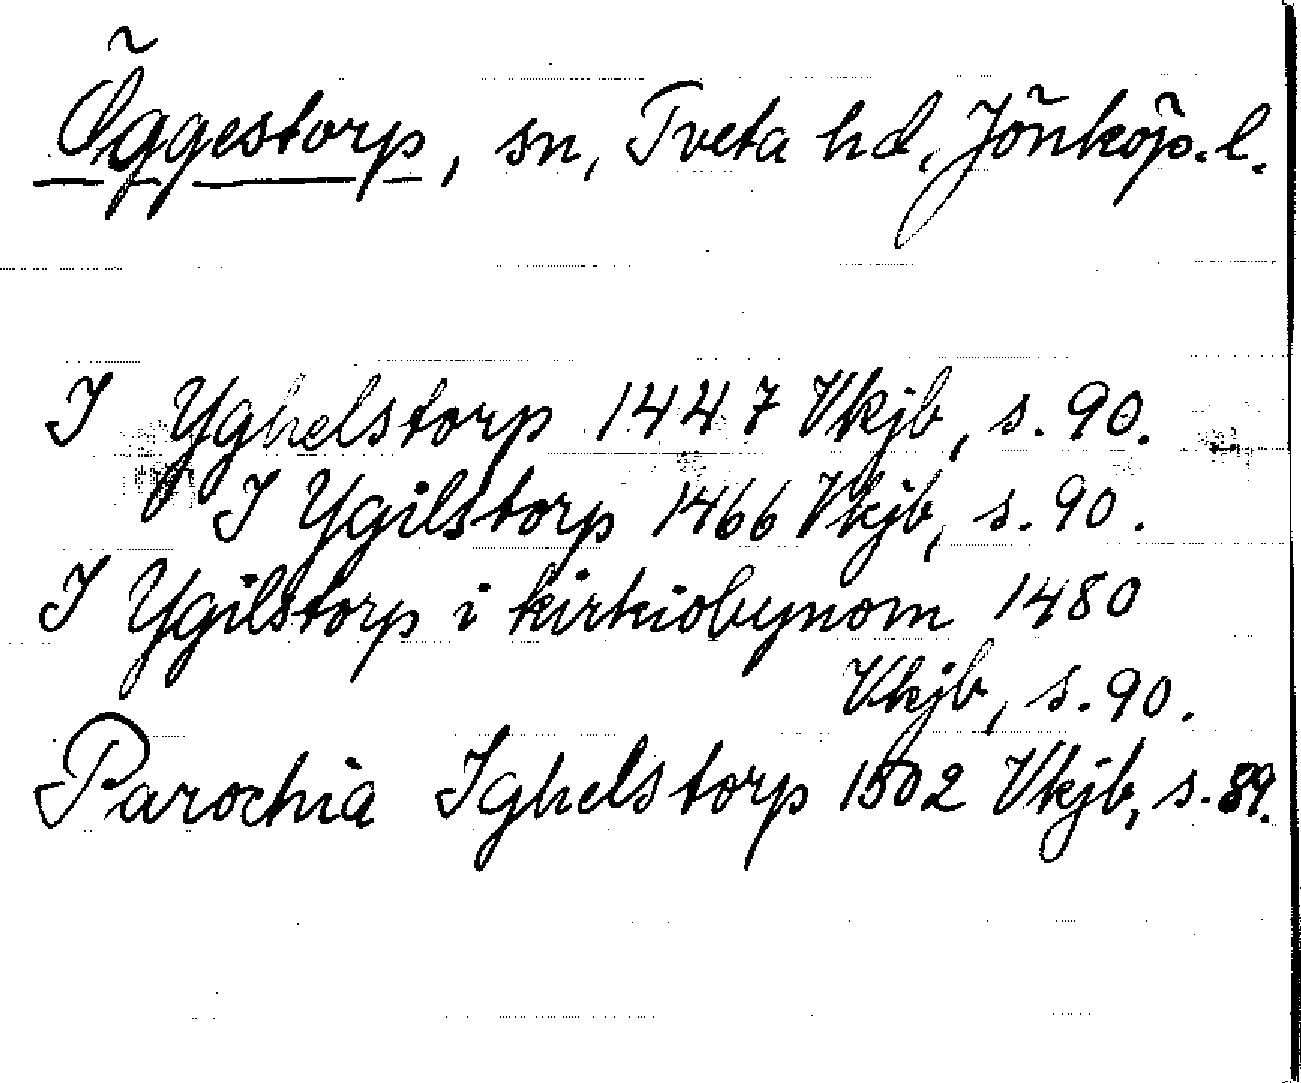 Öggestorp, sn, Tveta hd, Jönköp. l.
I Yghelstorp 1447 Vkjb, s. 90.
I Ygilstorp 1466 Vkjb, s. 90.
I Ygilstorp i kirkiobynom 1480
Vkjb, s. 90.
Parochia Ighelstorp 1502 Vkjb, s. 89.